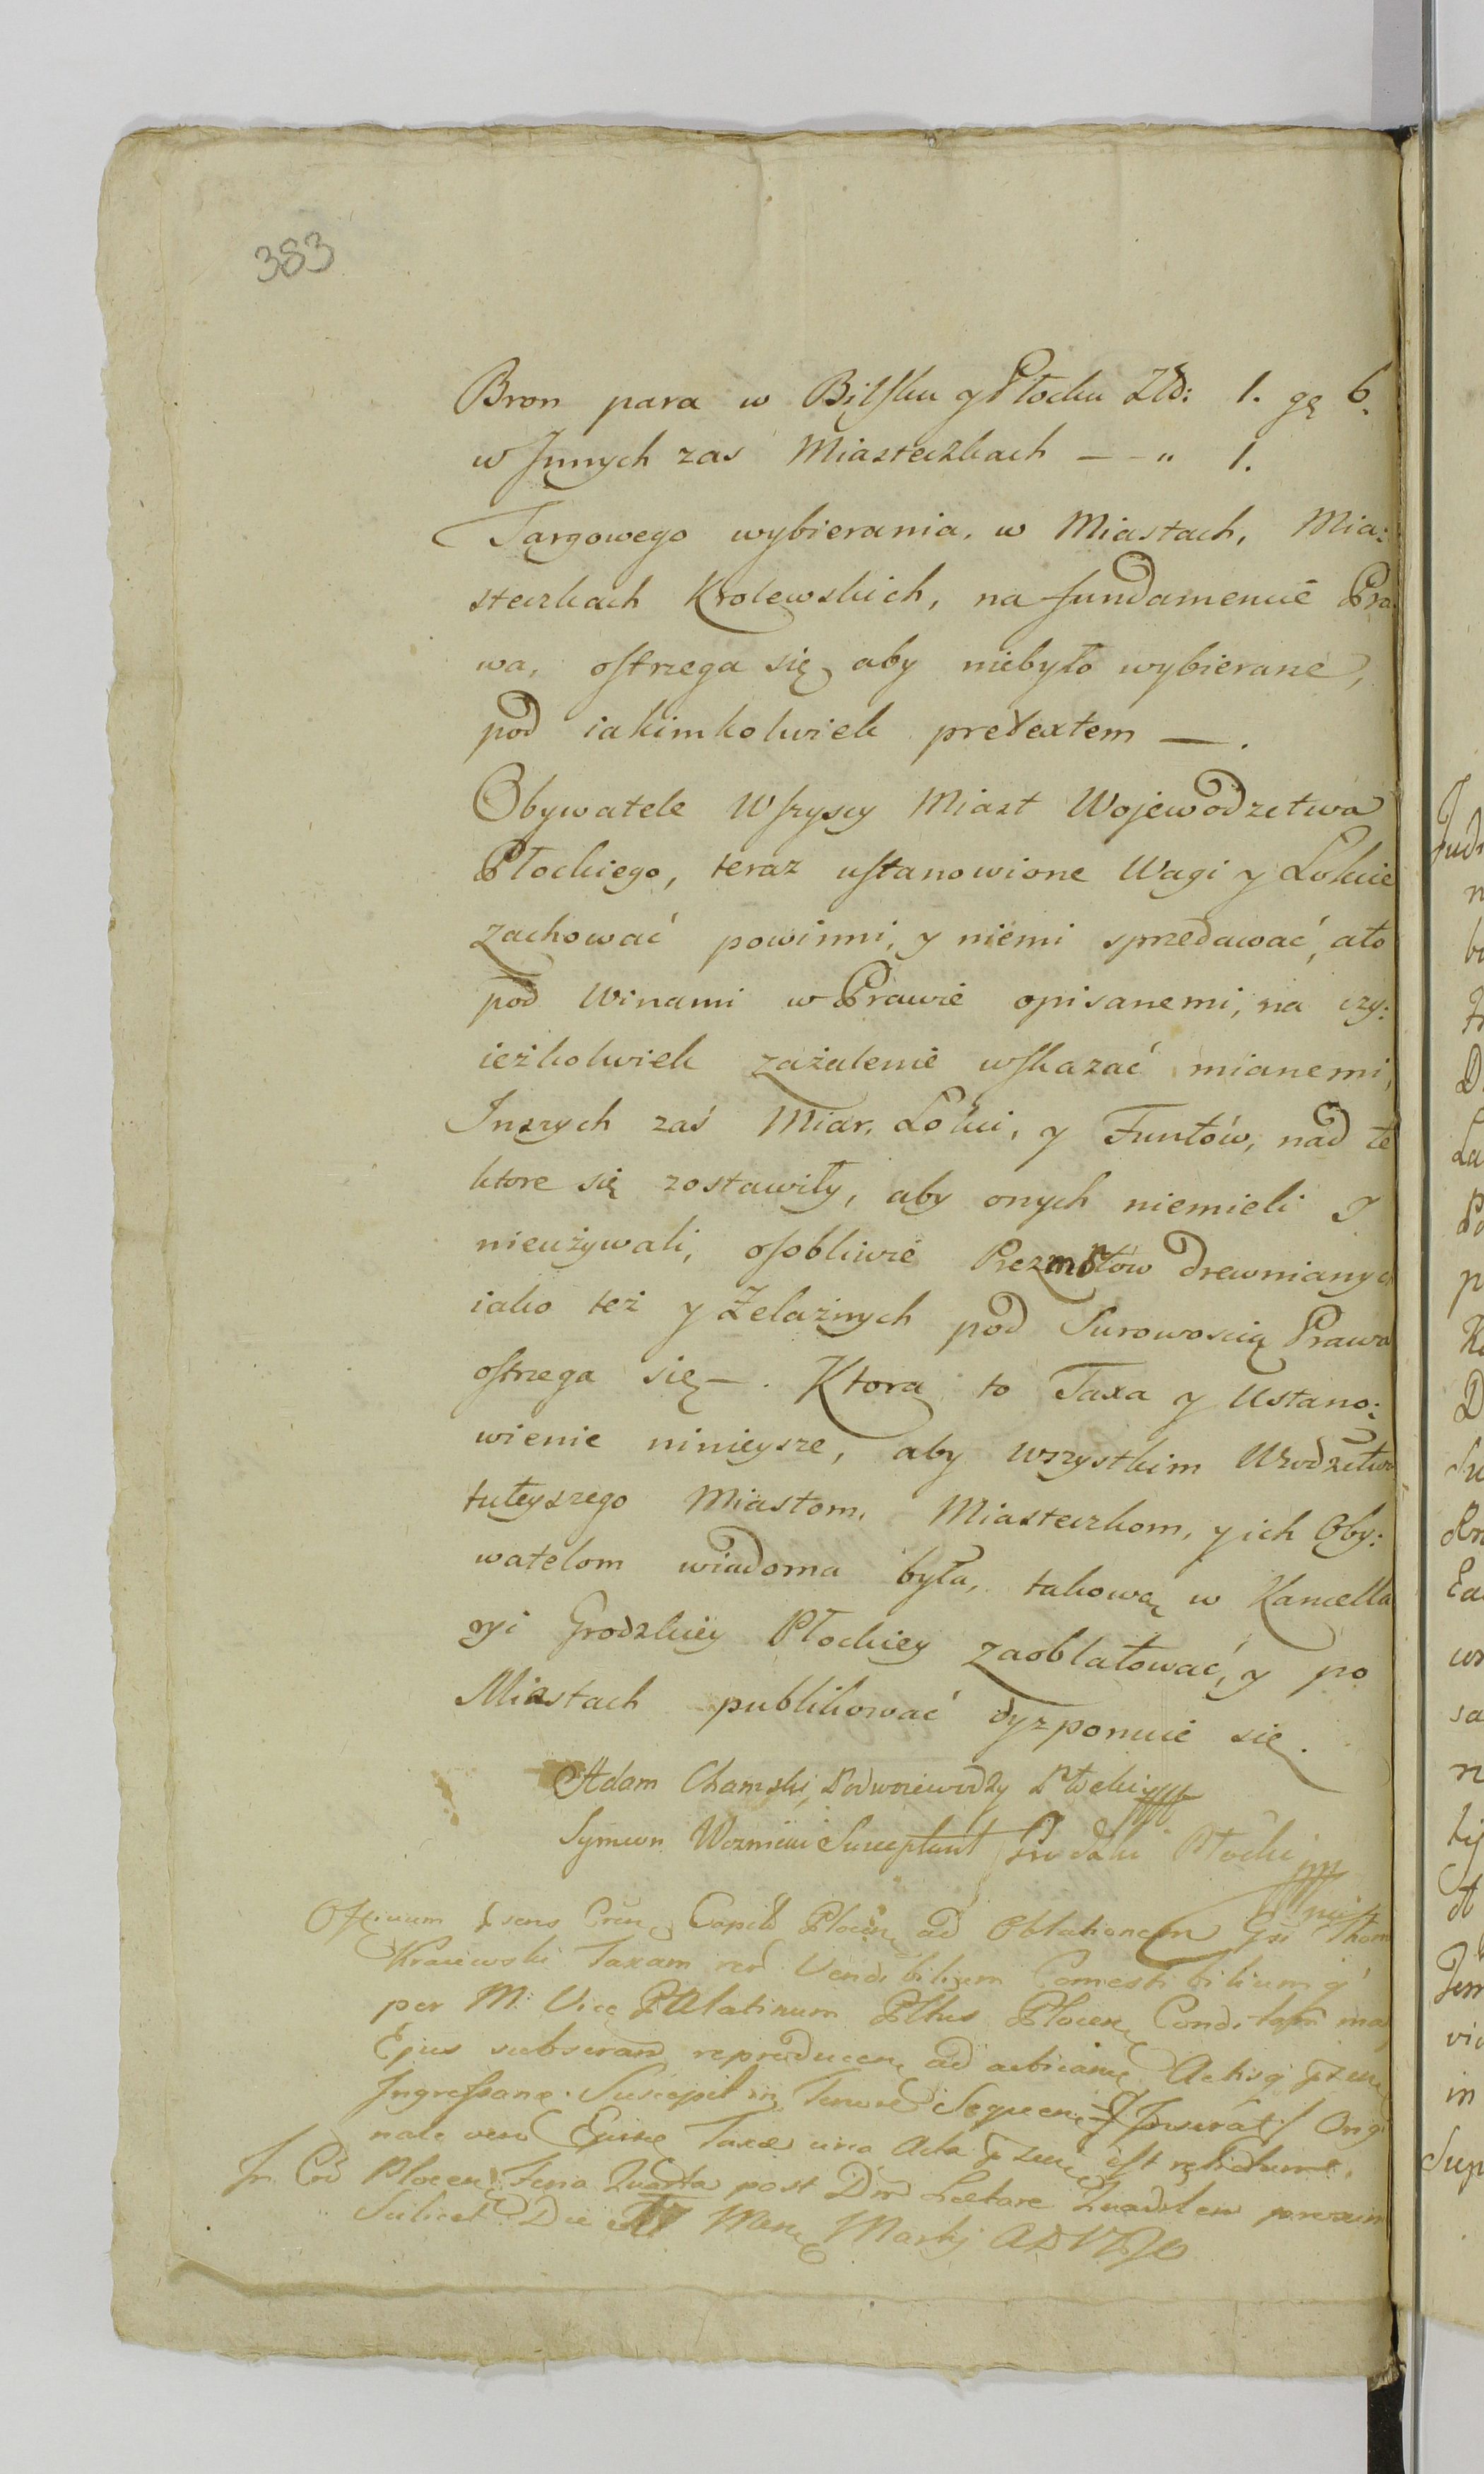 383
Bron para w Bilsku y Płocku Złł: 1. gę 6.
w Jnnych zas Miasteczkach — - „ 1.
Targowego wybierania, w Miastach, Mia:
steczkach Krolewskich, na fundamencie Pra
wa, ostrzega się, aby niebyło wybierane,
pod iakimkolwiek pretextem — .
Obywatele Wszyscy Miast Wojewodztwa
Płockiego, teraz ustanowione Wagi y Łokcie
zachować powinni, y niemi sprzedawać, ato
pod Winami w Prawie opisanemi, na czy:
ieżkolwiek zażalenie wskazać mianemi,
Jnszych zaś Miar, Łokci, y Funtów, nad te
ktore się zostawiły, aby onych niemieli y
nieużywali, osobliwie drewnianych
iako też y Żelaźnych pod Surowoscią Prawa
ostrzega się — . Ktora to Taxa y Ustano:
wienie ninieysze, aby wszystkim Wwodzctwa
tuteyszego Miastom, Miasteczkom, y ich Oby:
watelom wiadoma była, takową w Kancella
ryi Grodzkiey Płockiey zaoblatować, y po
Miastach publikować dyzponuie się.
Adam Chamski, Podwoiewodzy Płocki
Symeon Susceptant Grodzki Płocki
Officium Capit Plocen ad Oblationem Thom
Kraiewski Taxam rer Vendibilium Comestibilium q
per M. Vice Palatinum Plttus Plocen Conditam ma
Ejus subscran reproducen ad acticam Actisq
Jngrossan. Suscepit in Tenore Sequen Orig
nale vero Ejusq Taxæ una Acta est relictum.
Jn Plocen Feria Quarta post Dnm Lætare proxim
Scilicet Die 17 Men Martij AD 1790
Jud
n
D
La
Po
p
D
Su
Ea
sa
n
Tem
vi
in
Sup